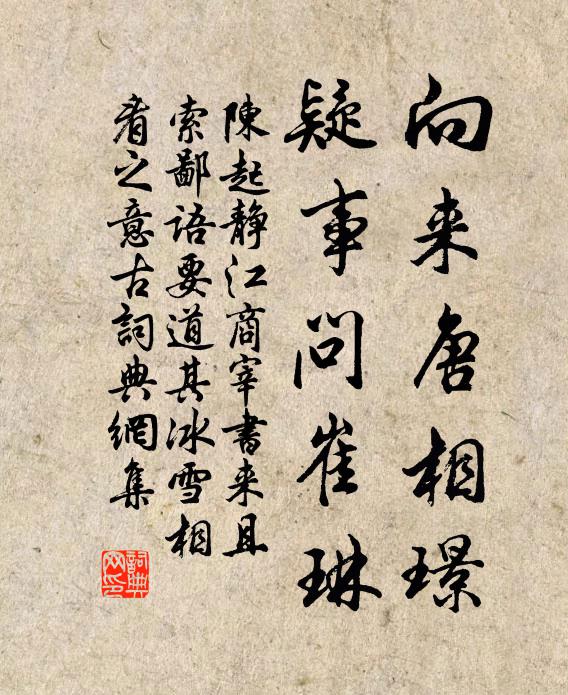 向来唐相璟
疑事问崔琳
陳起静江商宰书来且
索鄙语要道其冰雪相
看之意古詞典網集
詞典網印